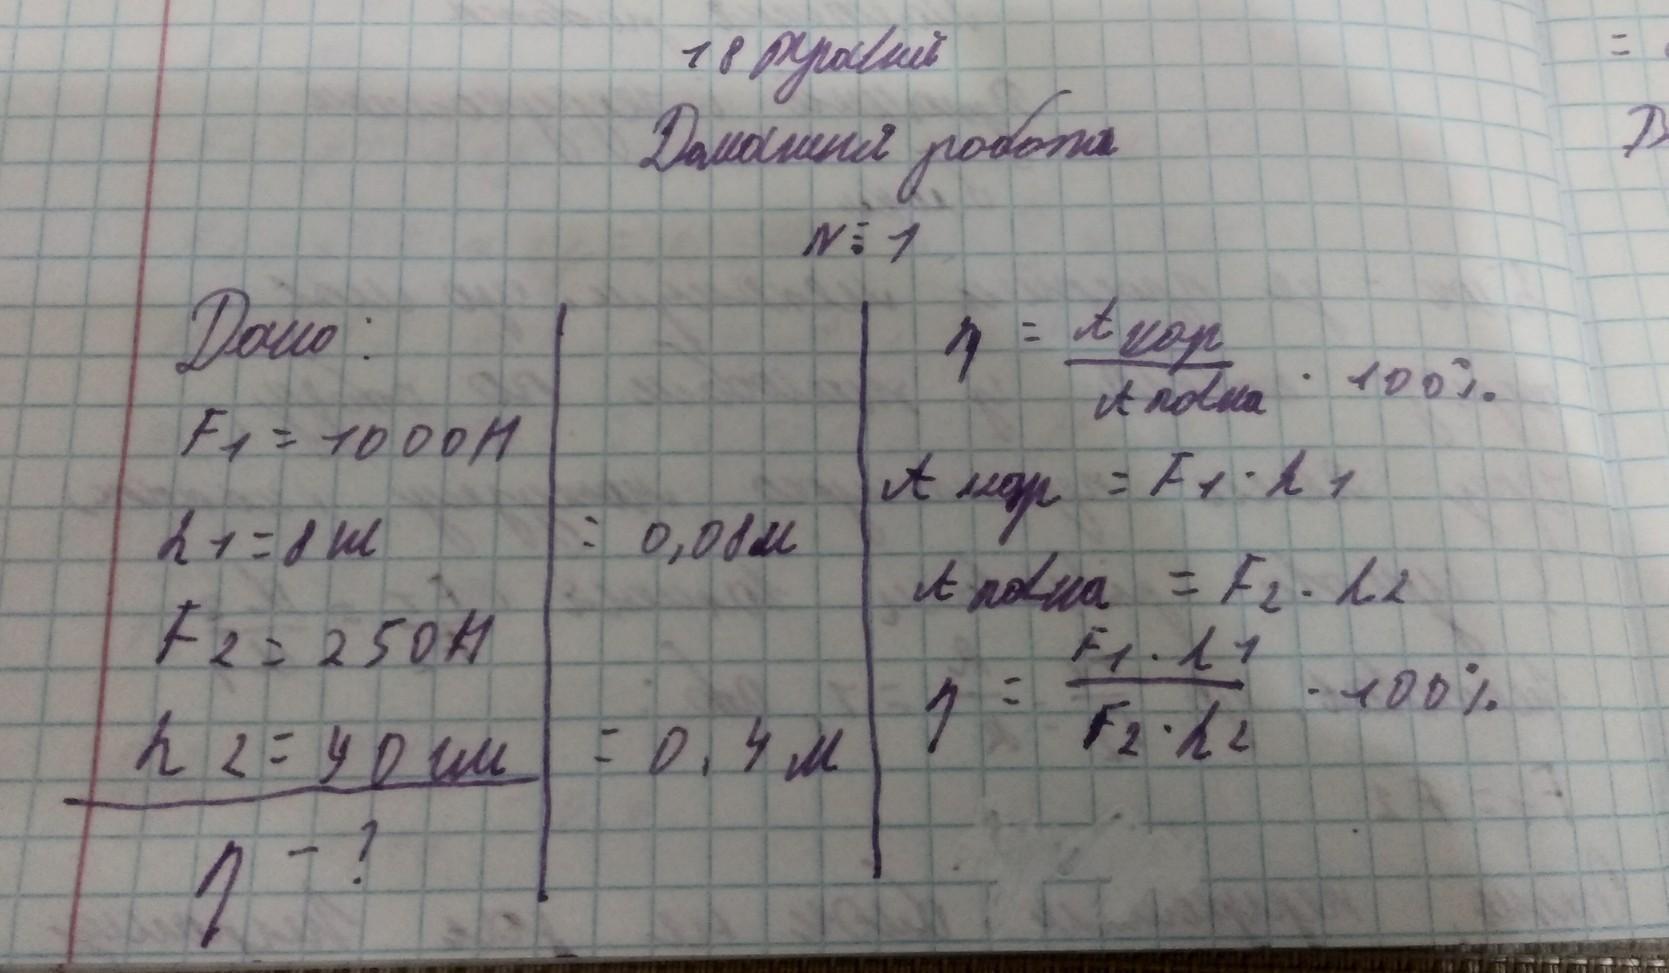 18 травня
Домашня робота
№ 1
Дано:
F1 = 1000 Н
h1 = 8 см = 0,08 м
F2 = 250 Н
h2 = 40 см = 0,4 м
η - ?
η = A кор / A повна · 100%
A кор = F1 · h1
A повна = F2 · h2
η = F1 · h1 / F2 · h2 · 100%